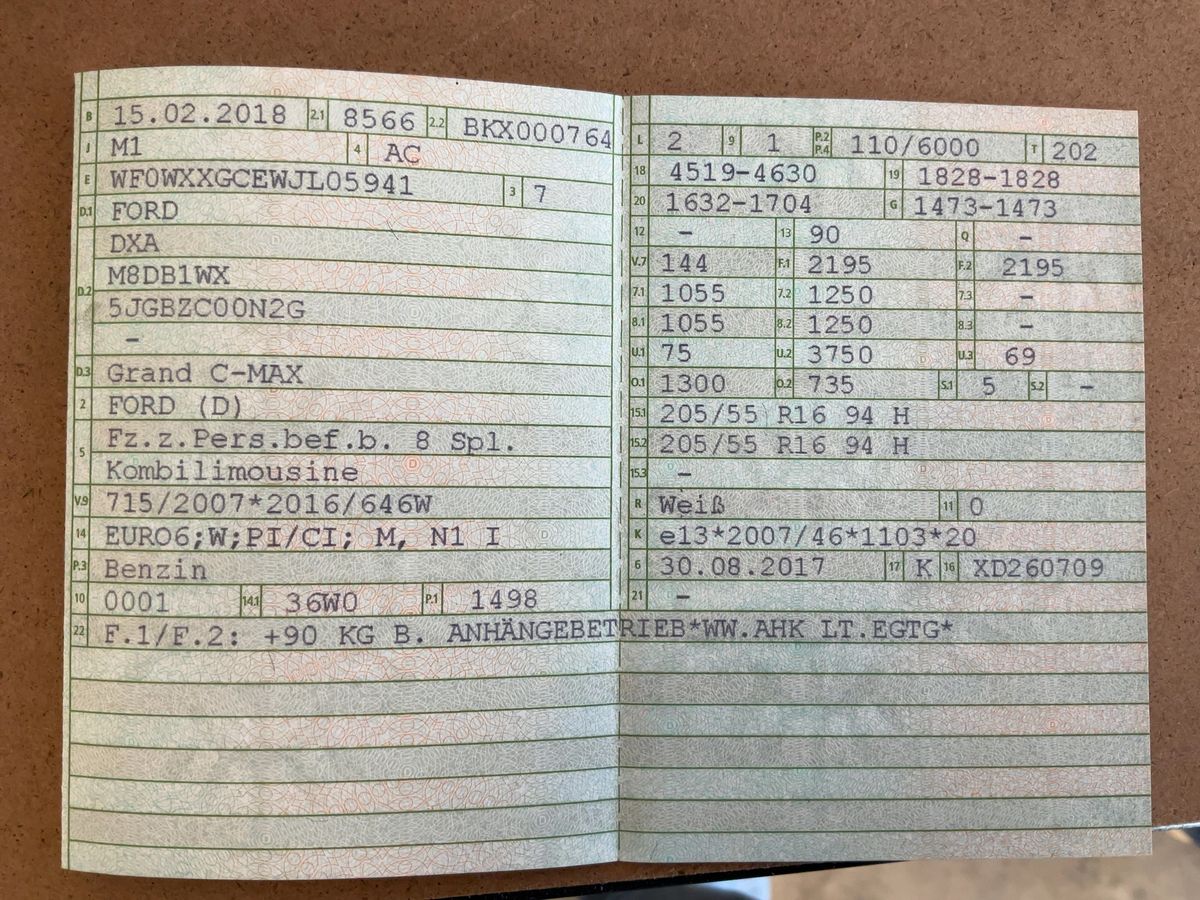 B 15.02.2018 2.1 8566 2.2 BKX000764
J M1 4 AC
E WF0WXXGCEWJL05941 3 7
D.1 FORD
DXA
D.2 M8DB1WX
5JGBZC00N2G
–
D.3 Grand C-MAX
2 FORD (D)
5 Fz.z.Pers.bef.b. 8 Spl.
Kombilimousine
V.9 715/2007*2016/646W
14 EURO6;W;PI/CI; M, N1 I
P.3 Benzin
10 0001 14.1 36W0 P.1 1498
L 2 9 1 P.2 P.4 110/6000 T 202
18 4519-4630 19 1828-1828
20 1632-1704 G 1473-1473
12 – 13 90 Q –
V.7 144 F.1 2195 F.2 2195
7.1 1055 7.2 1250 7.3 –
8.1 1055 8.2 1250 8.3 –
U.1 75 U.2 3750 U.3 69
O.1 1300 O.2 735 S.1 5 S.2 –
15.1 205/55 R16 94 H
15.2 205/55 R16 94 H
15.3 –
R Weiß 11 0
K e13*2007/46*1103*20
6 30.08.2017 17 K 16 XD260709
21 –
22 F.1/F.2: +90 KG B. ANHÄNGEBETRIEB*WW.AHK LT.EGTG*